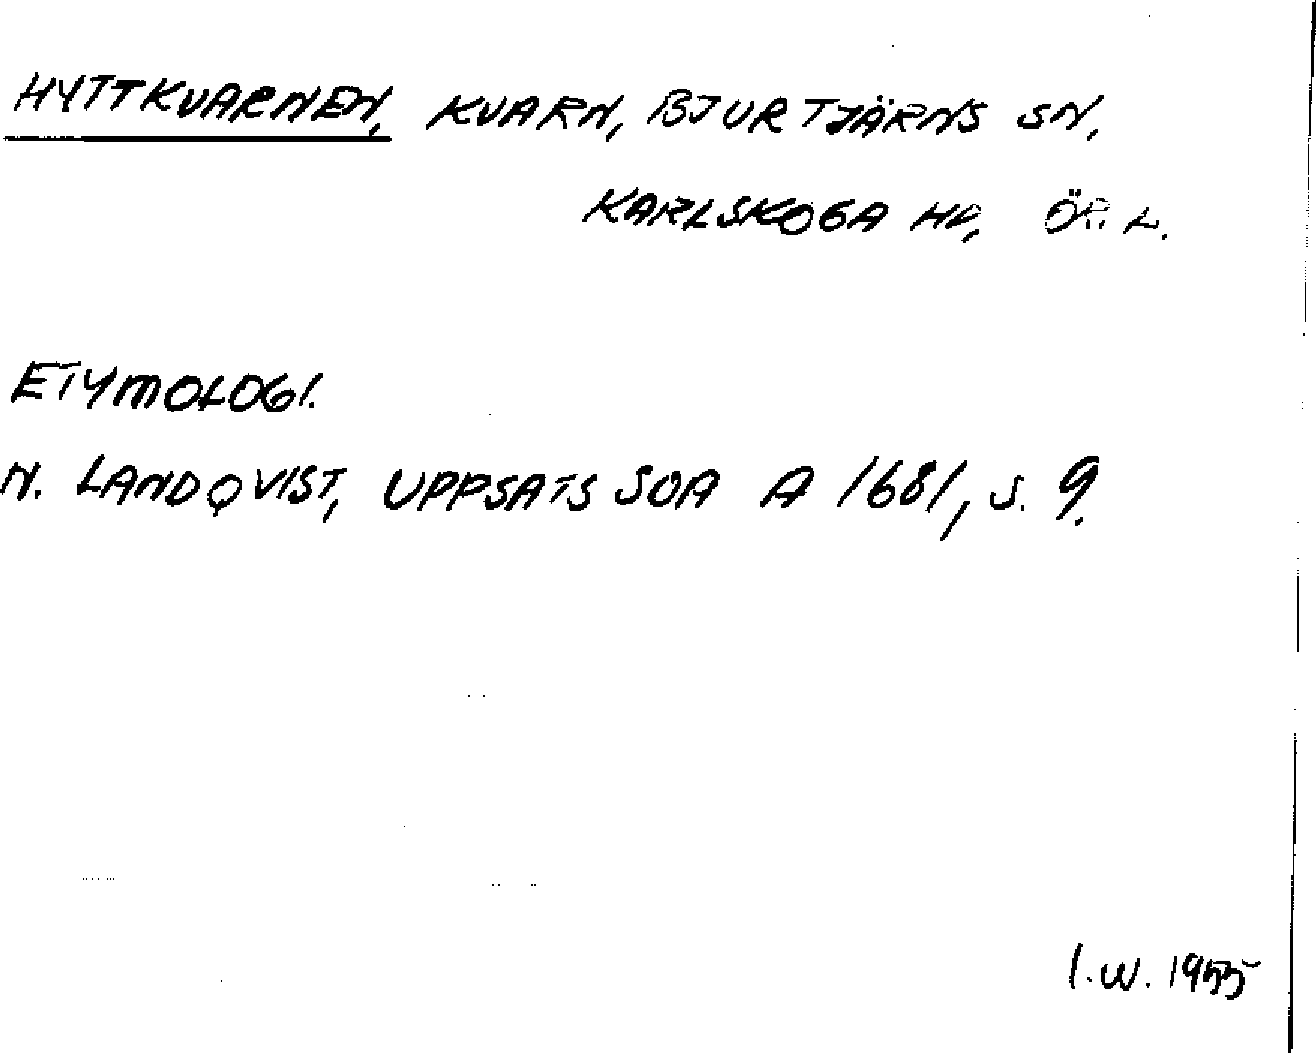 HYTTKVARNEN, KVARN, BJURTJÄRNS SN,
KARLSKOGA HD, ÖR. L.
ETYMOLOGI.
N. LANDQVIST, UPPSATS SOA A 1681, S. 9.
I.W. 1955